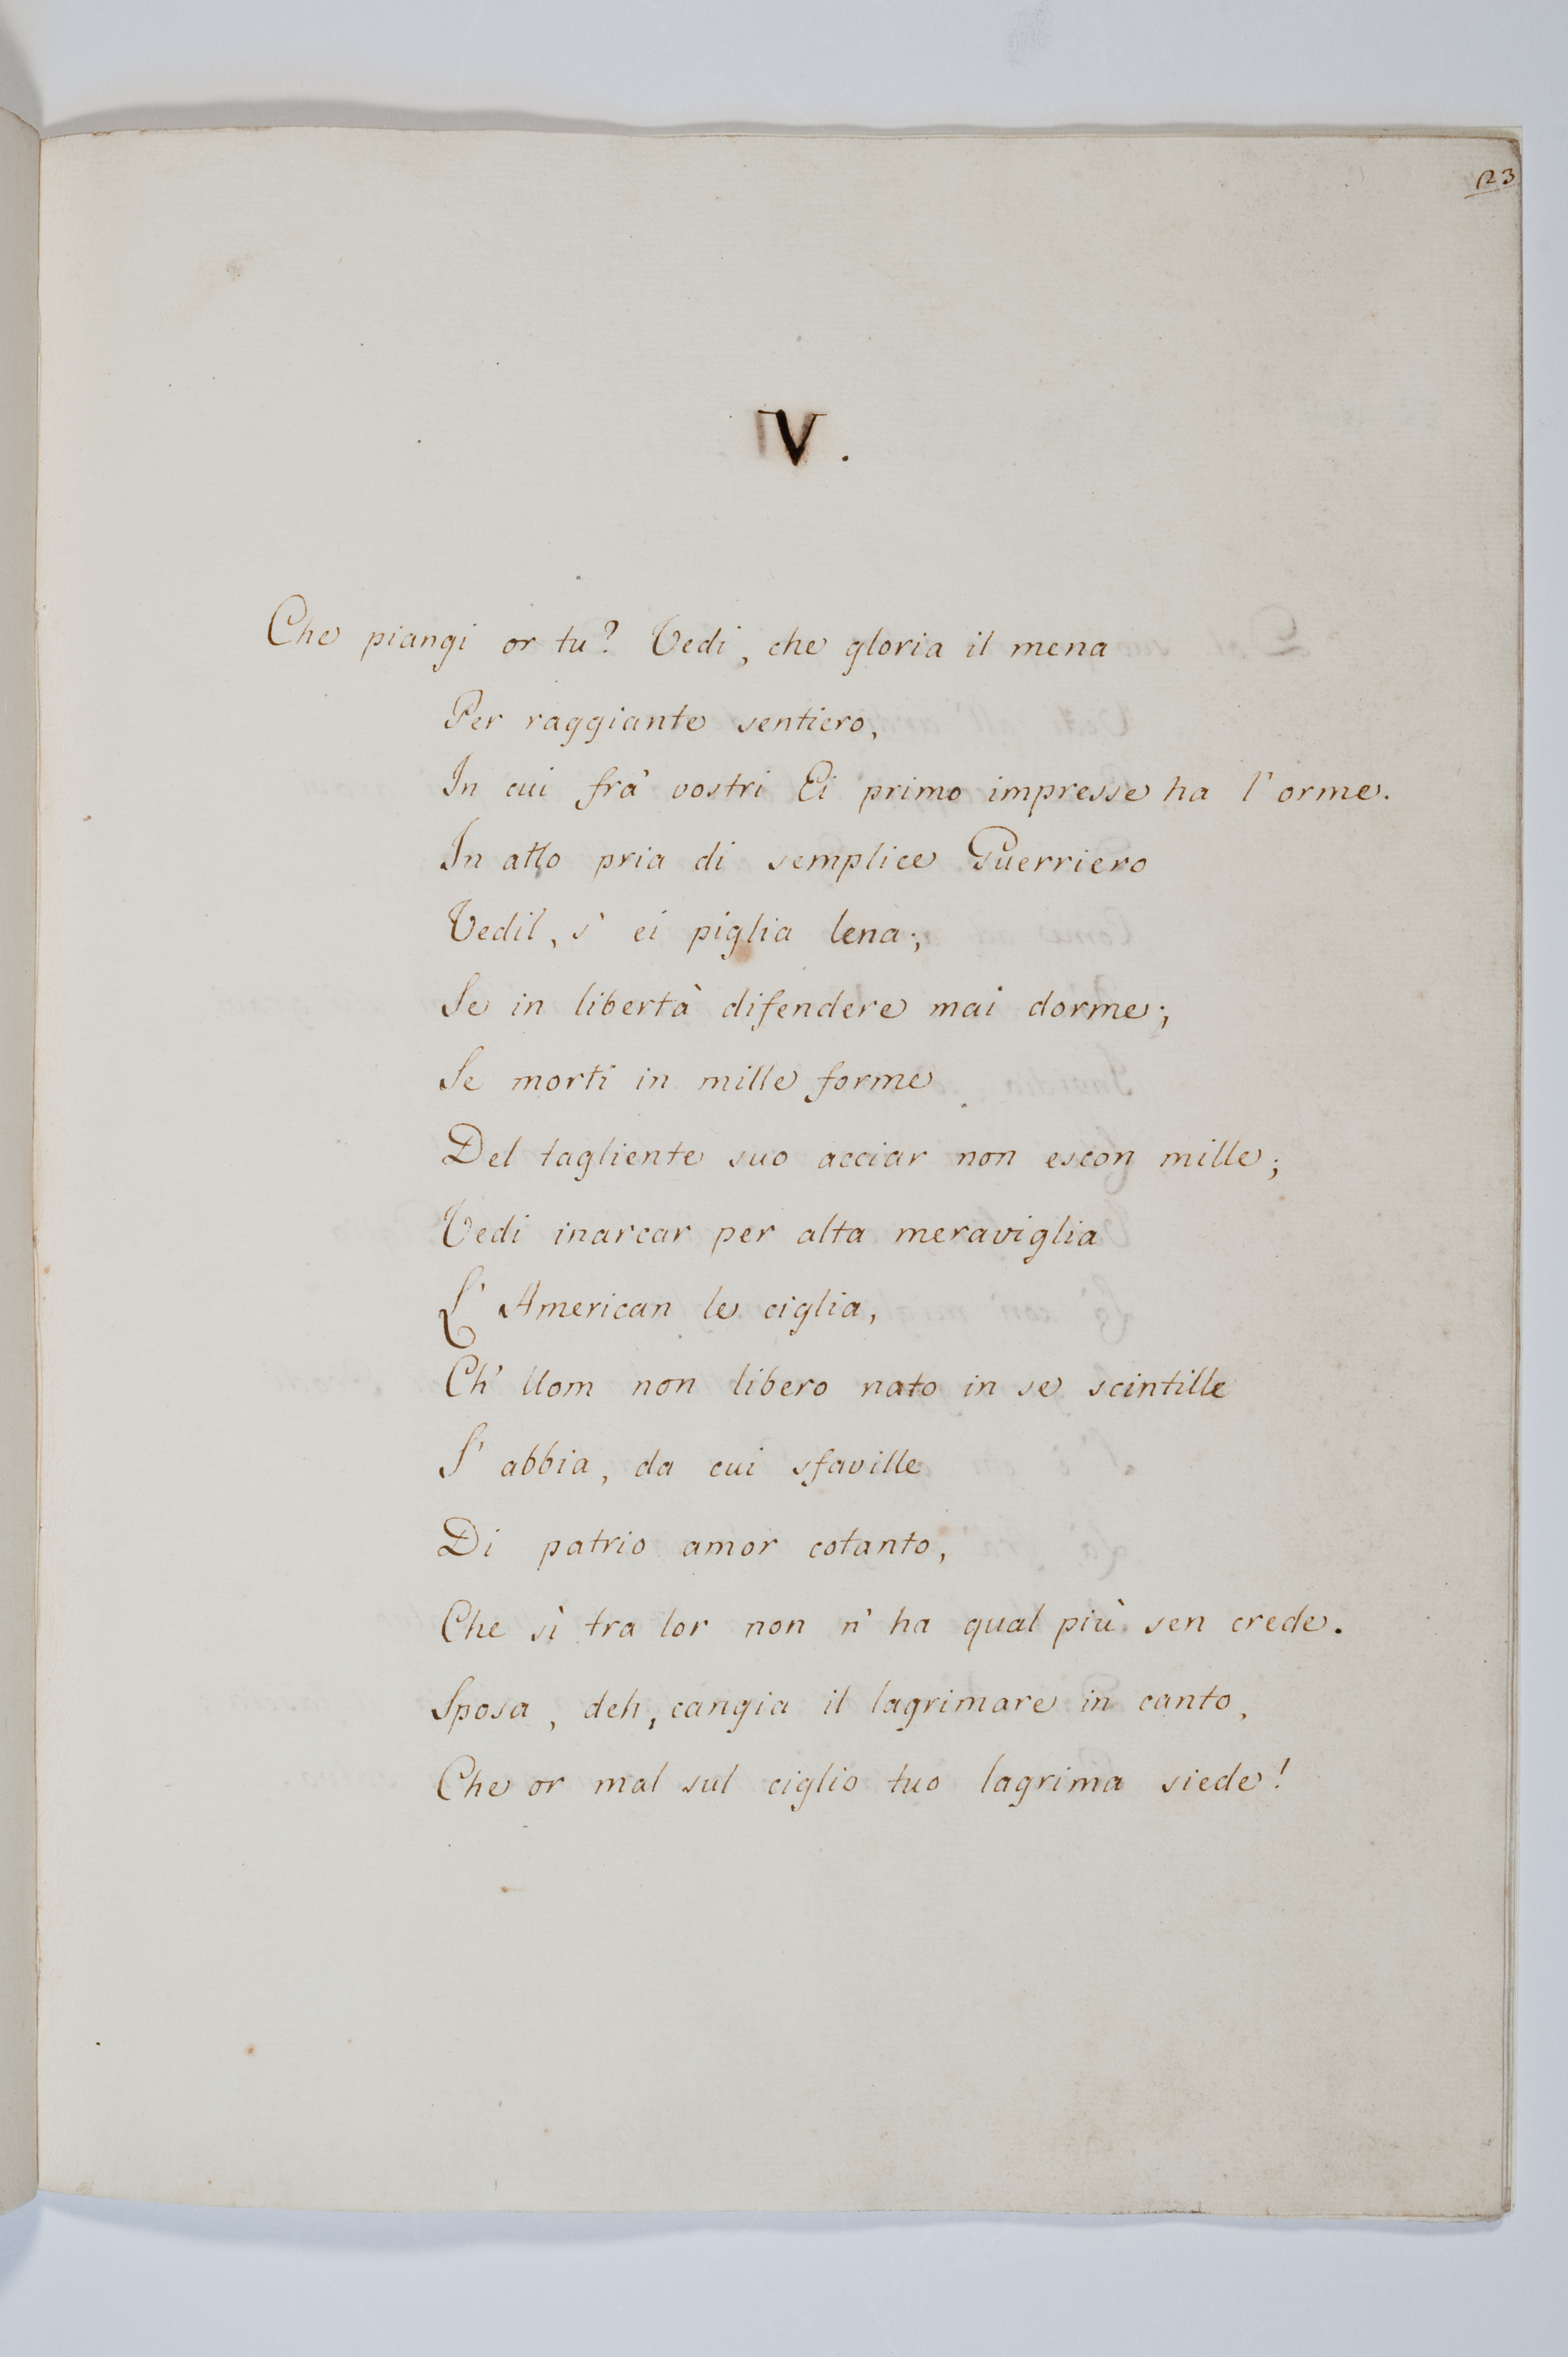 23
V.
Che piangi or tu? Vedi, che gloria il mena
Per raggiante sentiero,
In cui fra' vostri Ei primo impresse ha l'orme.
In atto pria di semplice Guerriero
Vedil, s' ei piglia lena;
Se in libertà difendere mai dorme;
Se morti in mille forme
Del tagliente suo acciar non escon mille;
Vedi inarcar per alta meraviglia
L' American le ciglia,
Ch' Uom non libero nato in se scintille
S' abbia, da cui sfaville
Di patrio amor cotanto,
Che sì tra lor non n' ha qual più sen crede.
Sposa, deh, cangia il lagrimare in canto,
Che or mal sul ciglio tuo lagrima siede!